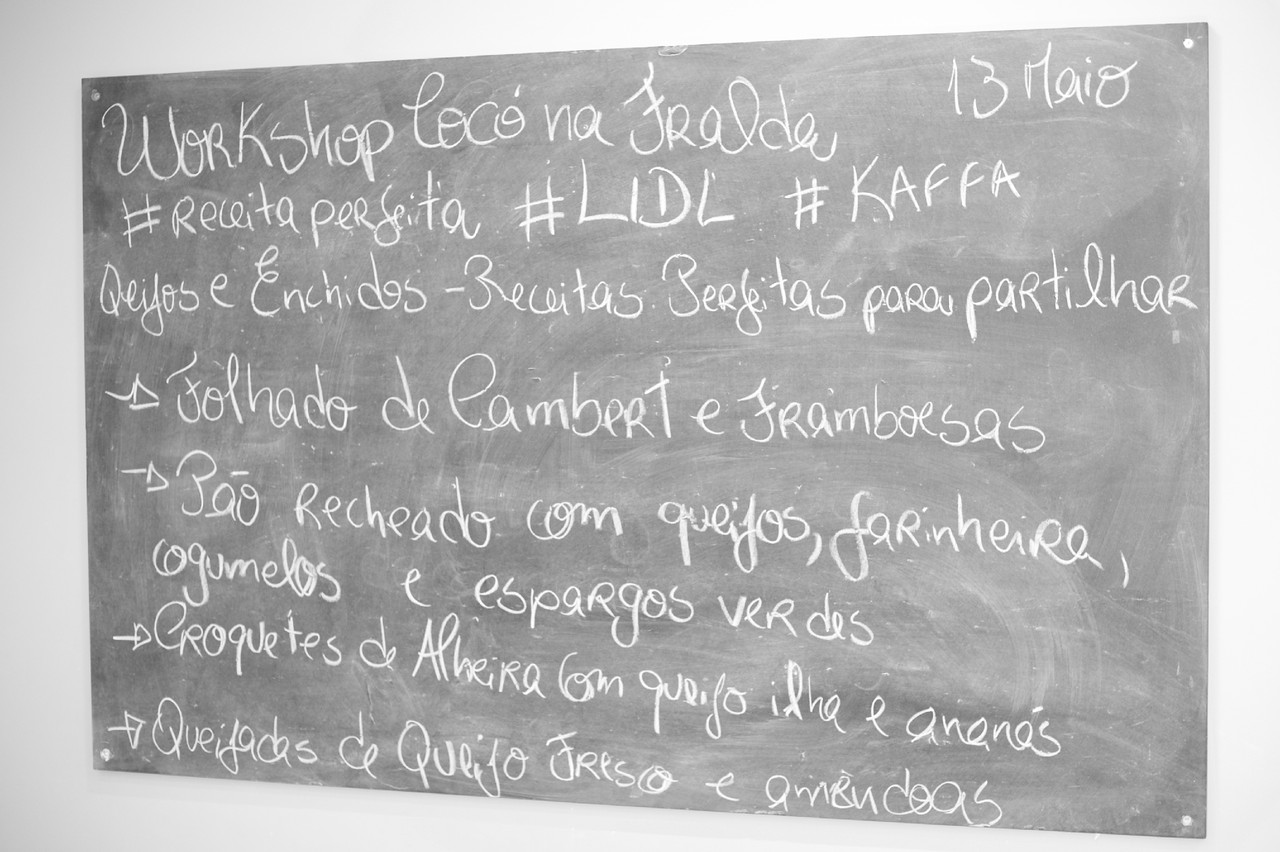 13 Maio
Workshop Cocó na Fralda
#Receita perfeita #LIDL #KAFFA
Queijos e Enchidos - Receitas Perfeitas para partilhar
→ Folhado de Cambert e Framboesas
→ Pão Recheado com queijos, farinheira,
cogumelos e espargos verdes
→ Croquetes de Alheira com queijo ilha e ananás
→ Queijadas de Queijo Fresco e amêndoas